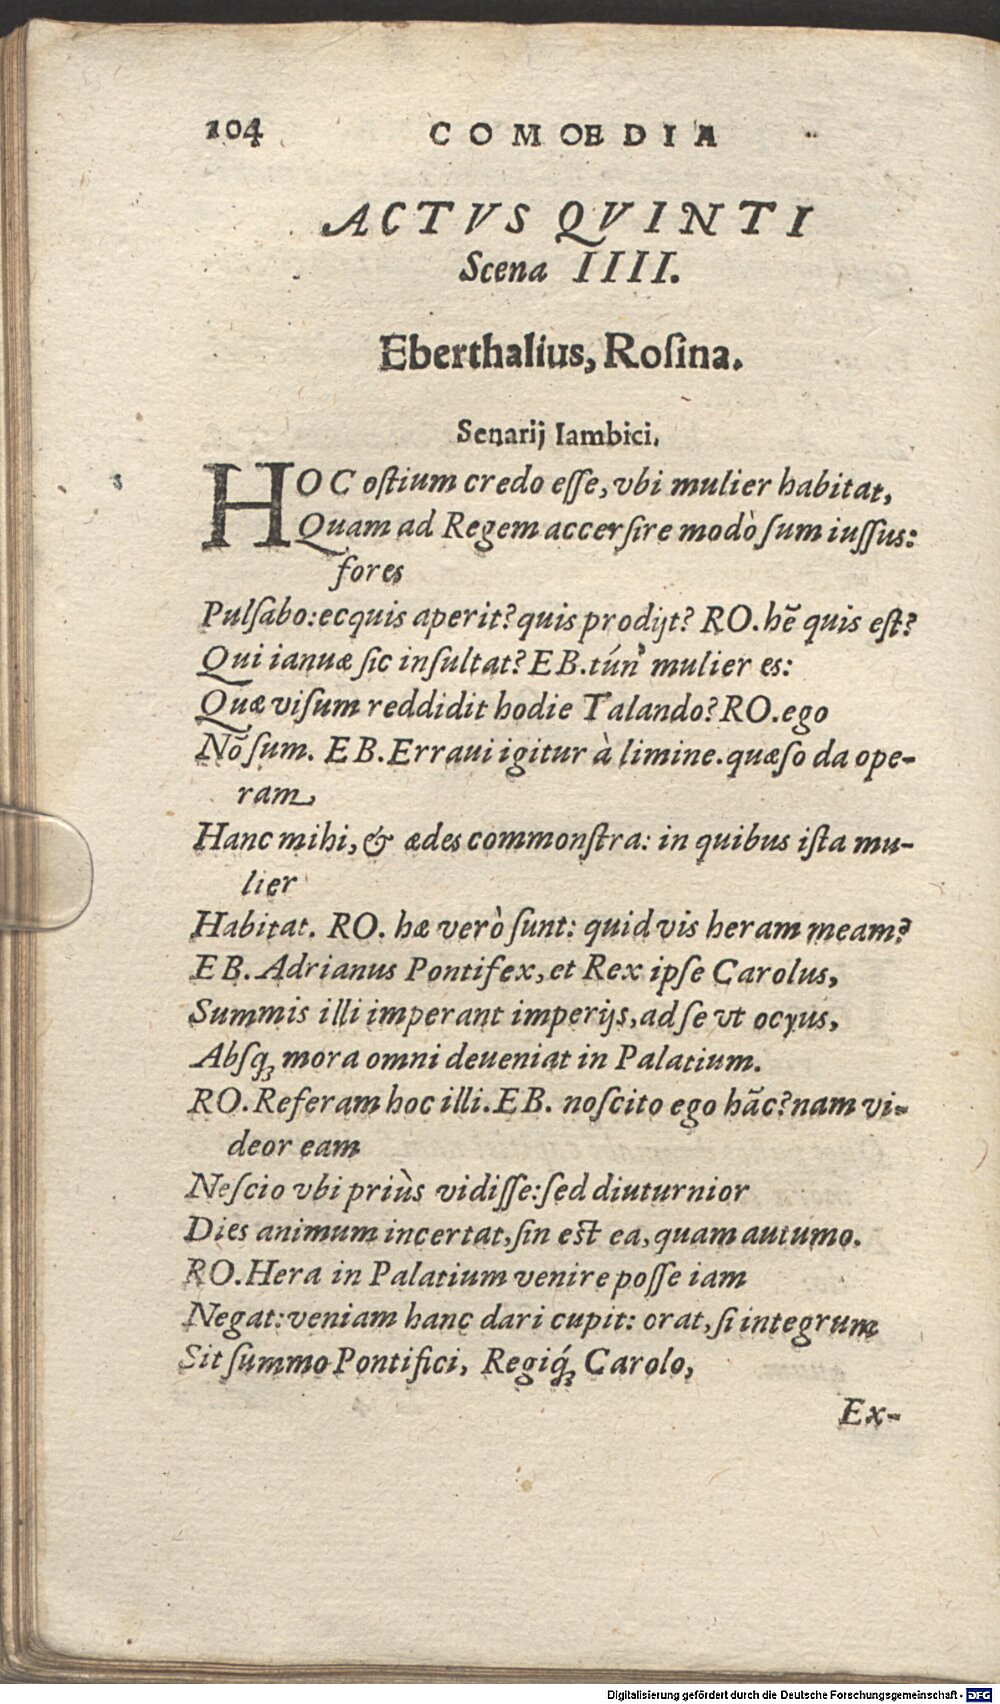 104 COMŒDIA
ACTVS QVINTI
Scena IIII.
Eberthalius, Roſina.
Senarij Iambici.
HOC oſtium credo eſſe, vbi mulier habitat,
Quam ad Regem accerſire modò ſum iuſſus:
fores
Pulſabo: ecquis aperit? quis prodijt? RO. hẽ quis eſt?
Qui ianuæ ſic inſultat? EB. tún' mulier es:
Quæ viſum reddidit hodie Talando? RO. ego
Nõ ſum. EB. Erraui igitur à limine. quæſo da ope-
ram,
Hanc mihi, & ædes commonſtra: in quibus iſta mu-
lier
Habitat. RO. hæ verò ſunt: quid vis heram meam?
EB. Adrianus Pontifex, et Rex ipſe Carolus,
Summis illi imperant imperijs, ad ſe vt ocyus,
Abſq; mora omni deueniat in Palatium.
RO. Referam hoc illi. EB. noſcito ego hãc? nam vi-
deor eam
Neſcio vbi priùs vidiſſe: ſed diuturnior
Dies animum incertat, ſin eſt ea, quam autumo.
RO. Hera in Palatium venire poſſe iam
Negat: veniam hanc dari cupit: orat, ſi integrum
Sit ſummo Pontifici, Regiq́; Carolo,
Ex-
Digitalisierung gefördert durch die Deutsche Forschungsgemeinschaft - DFG